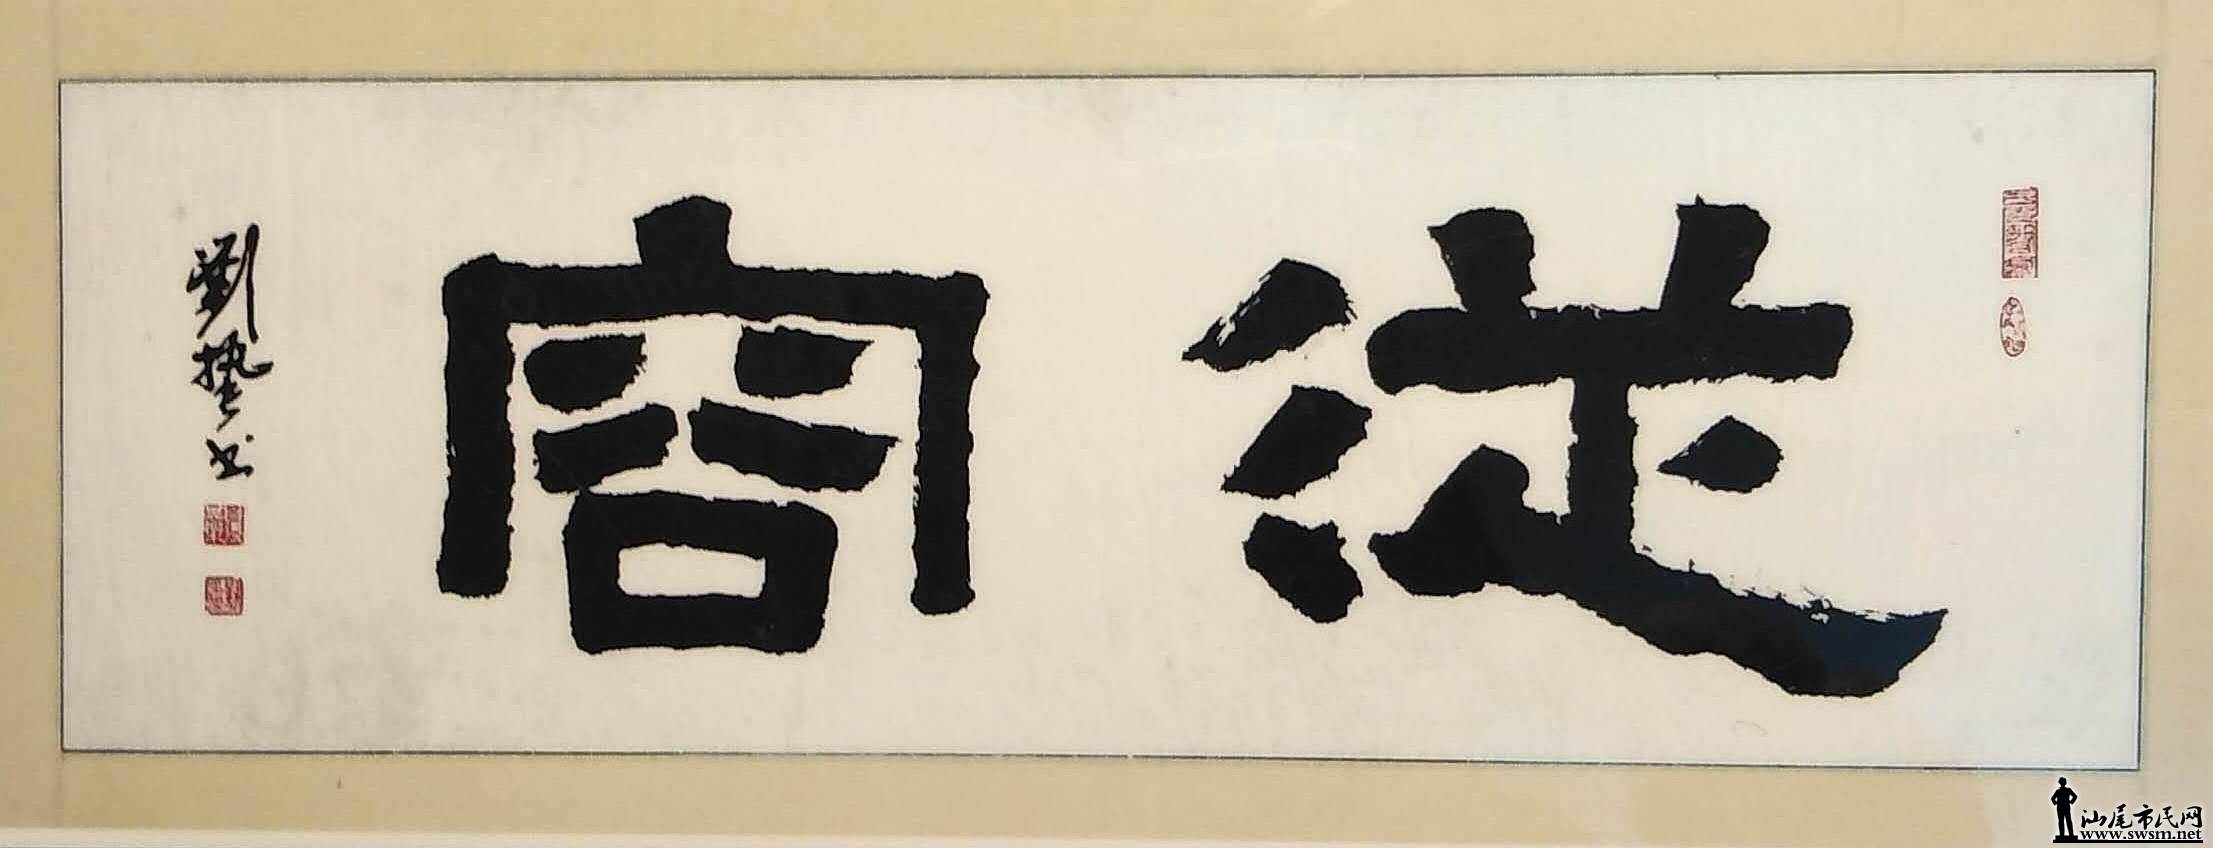 從容
劉藝書
汕尾市民网
www.swsm.net